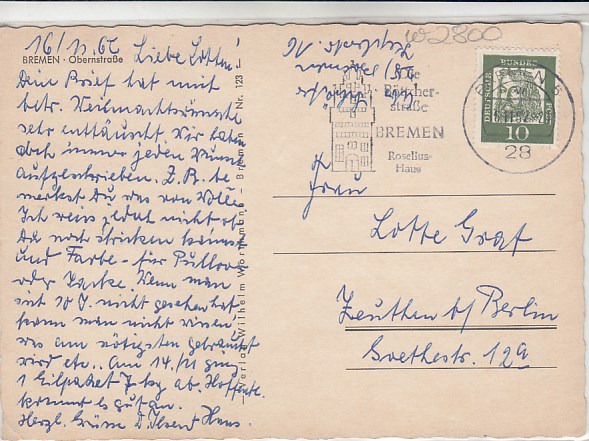 16/11.62 Liebe Lotte!
BREMEN · Obernstraße
Dein Brief hat mich
betr. Weihnachtswünsche
sehr enttäuscht. Wir haben
doch immer jeden Wunsch
aufgeschrieben. Z.B. be
merkst Du das von Wolle
Ich weiss jedoch nicht ob
Du noch stricken kannst
und Farbe - für Pullover
oder Jacke. Wenn man
seit 20 J. nicht gesehen hat
kann man nicht wissen,
was am nötigsten gebraucht
wird etc. Am 14./11 ging
1 Eilpaket 7 kg ab. Hoffentl.
kommt es gut an.
Herzl. Grüsse D. Hans
Verlag Wilhelm Wortmann · Bremen Nr. 123
W2800
Die
Böttcher-
straße
BREMEN
Roselius-
Haus
DEUTSCHE BUNDESPOST
10
BREMEN 5
28
Frau
Lotte Graf
Zeuthen b/ Berlin
Goethestr. 12a